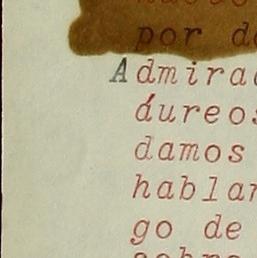 por d
Admirac
áureos
damos
hablar
go de